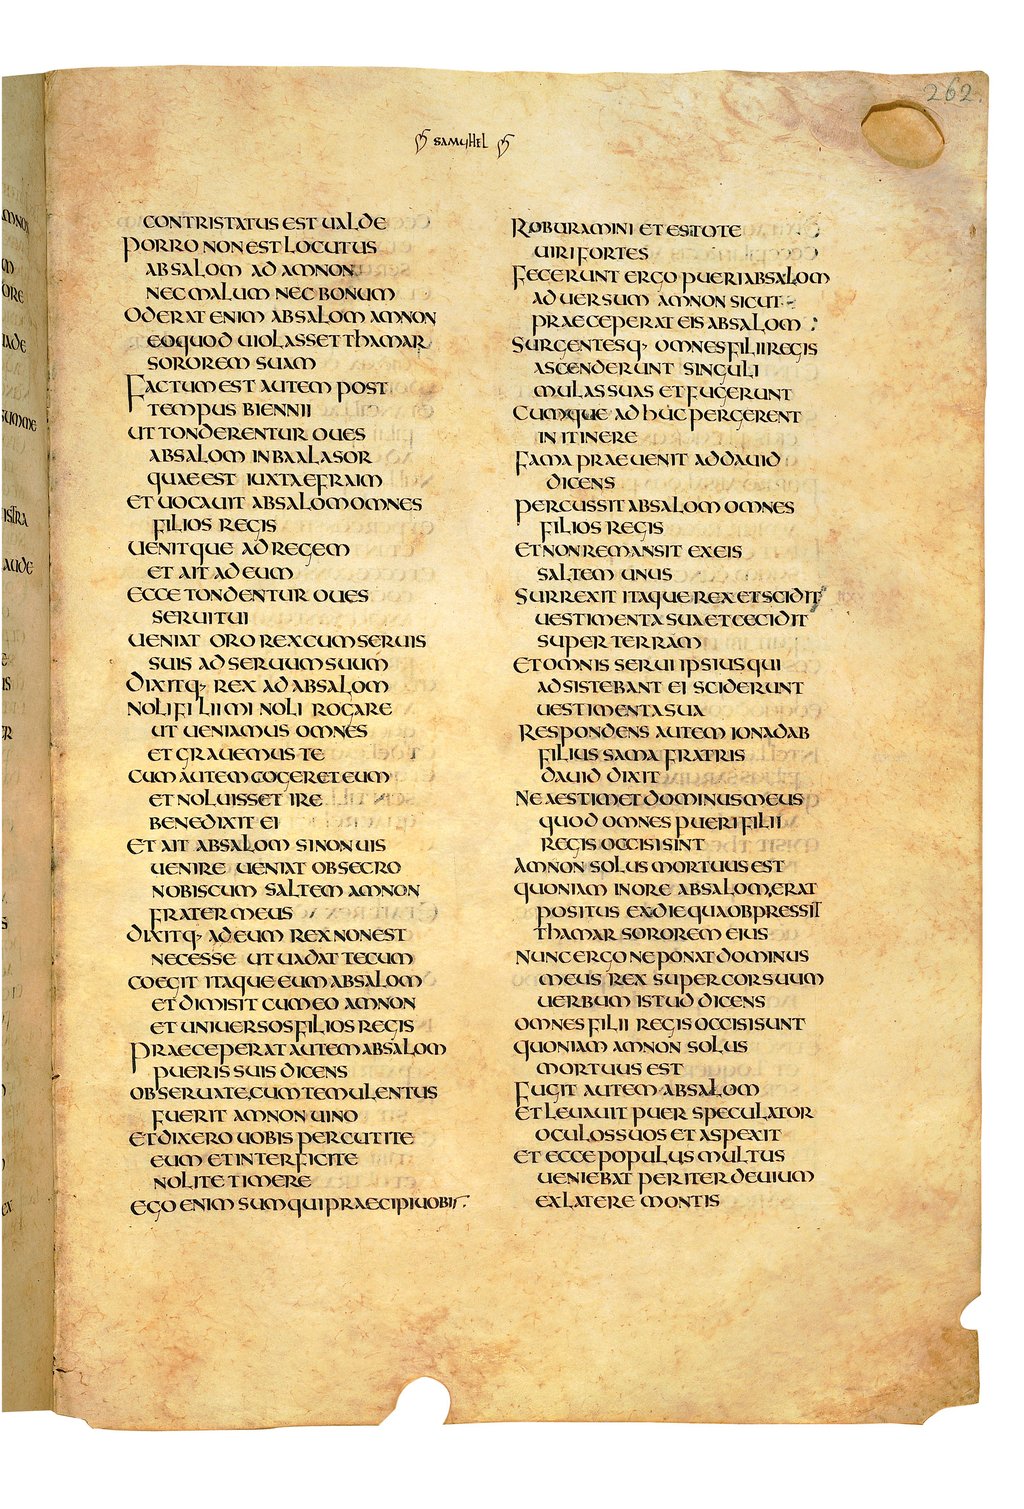 262.
SAMUHEL
CONTRISTATUS EST UALDE
PORRO NON EST LOCUTUS
ABSALOM AD AMNON
NEC MALUM NEC BONUM
ODERAT ENIM ABSALOM AMNON
EOQUOD UIOLASSET THAMAR
SOROREM SUAM
FACTUM EST AUTEM POST
TEMPUS BIENNII
UT TONDERENTUR OUES
ABSALOM IN BAALASOR
QUAE EST IUXTA EFRAIM
ET UOCAUIT ABSALOM OMNES
FILIOS REGIS
UENITQUE AD REGEM
ET AIT AD EUM
ECCE TONDENTUR OUES
SERUI TUI
UENIAT ORO REX CUM SERUIS
SUIS AD SERUUM SUUM
DIXITQ, REX AD ABSALOM
NOLI FILI MI NOLI ROGARE
UT UENIAMUS OMNES
ET GRAUEMUS TE
CUM AUTEM COGERET EUM
ET NOLUISSET IRE
BENEDIXIT EI
ET AIT ABSALOM SI NON UIS
UENIRE UENIAT OBSECRO
NOBISCUM SALTEM AMNON
FRATER MEUS
DIXITQ, AD EUM REX NON EST
NECESSE UT UADAT TECUM
COEGIT ITAQUE EUM ABSALOM
ET DIMISIT CUM EO AMNON
ET UNIUERSOS FILIOS REGIS
PRAECEPERAT AUTEM ABSALOM
PUERIS SUIS DICENS
OBSERUATE CUM TEMULENTUS
FUERIT AMNON UINO
ET DIXERO UOBIS PERCUTITE
EUM ET INTERFICITE
NOLITE TIMERE
EGO ENIM SUM QUI PRAECIPI UOBIS
ROBURAMINI ET ESTOTE
UIRI FORTES
FECERUNT ERGO PUERI ABSALOM
ADUERSUM AMNON SICUT
PRAECEPERAT EIS ABSALOM
SURGENTESQ, OMNES FILII REGIS
ASCENDERUNT SINGULI
MULAS SUAS ET FUGERUNT
CUMQUE ADHUC PERGERENT
IN ITINERE
FAMA PRAEUENIT AD DAUID
DICENS
PERCUSSIT ABSALOM OMNES
FILIOS REGIS
ET NON REMANSIT EX EIS
SALTEM UNUS
SURREXIT ITAQUE REX ET SCIDIT
UESTIMENTA SUA ET CECIDIT
SUPER TERRAM
ET OMNIS SERUI IPSIUS QUI
ADSISTEBANT EI SCIDERUNT
UESTIMENTA SUA
RESPONDENS AUTEM IONADAB
FILIUS SAMA FRATRIS
DAUID DIXIT
NE AESTIMET DOMINUS MEUS
QUOD OMNES PUERI FILII
REGIS OCCISI SINT
AMNON SOLUS MORTUUS EST
QUONIAM IN ORE ABSALOM ERAT
POSITUS EX DIE QUA OBPRESSIT
THAMAR SOROREM EIUS
NUNC ERGO NE PONAT DOMINUS
MEUS REX SUPER COR SUUM
UERBUM ISTUD DICENS
OMNES FILII REGIS OCCISI SUNT
QUONIAM AMNON SOLUS
MORTUUS EST
FUGIT AUTEM ABSALOM
ET LEUAUIT PUER SPECULATOR
OCULOS SUOS ET ASPEXIT
ET ECCE POPULUS MULTUS
UENIEBAT PER ITER DEUIUM
EX LATERE MONTIS